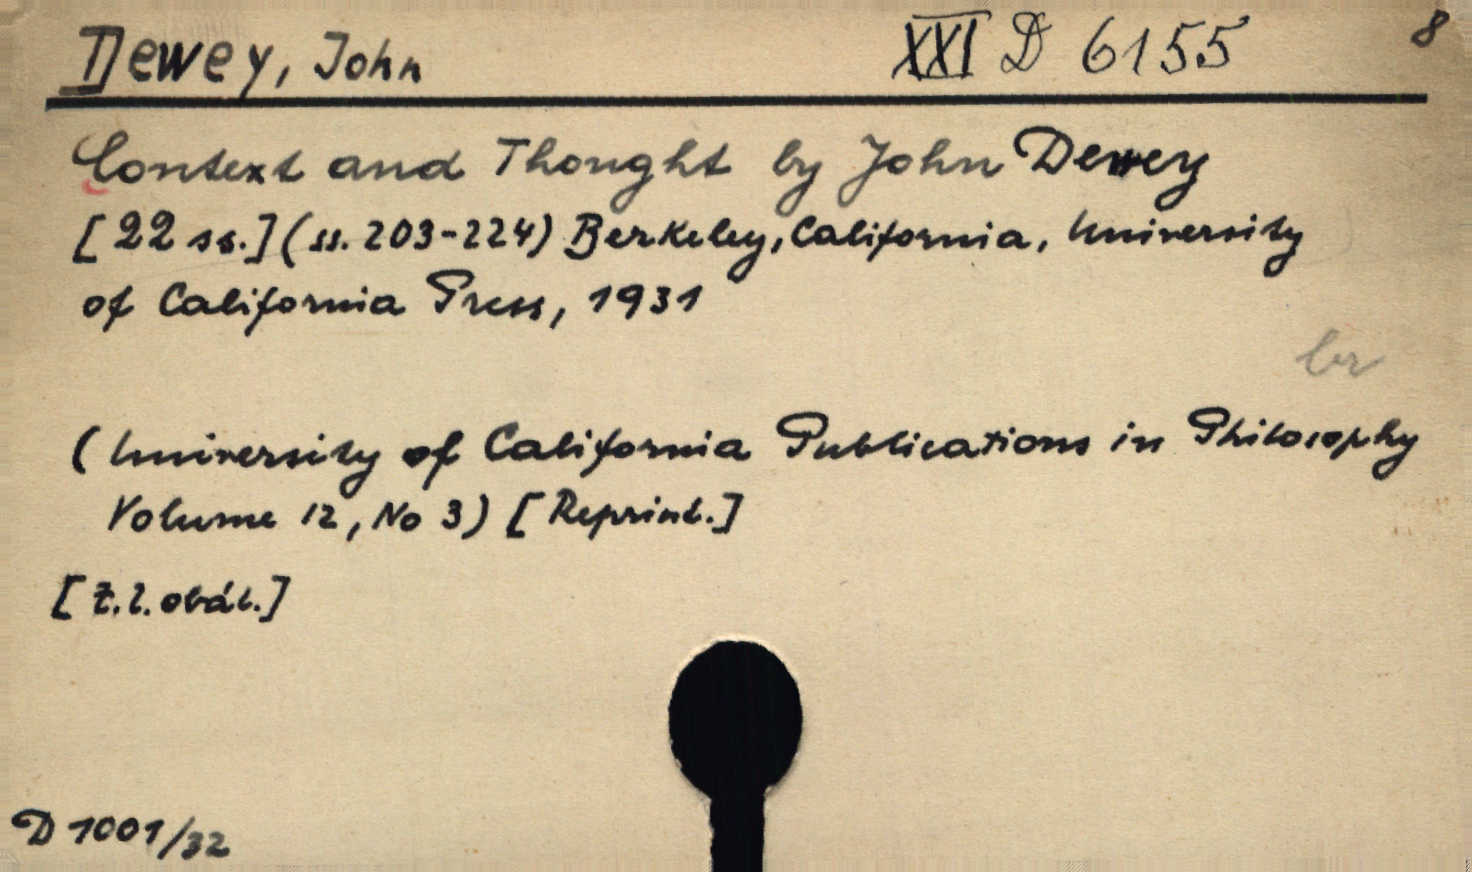 Dewey, John XXI D 6155 8
Context and Thought by John Dewey
[22 ss.] (ss. 203-224) Berkeley, California, University
of California Press, 1931
br
(University of California Publications in Philosophy
Volume 12, No 3) [Reprint.]
[Z. l. obál.]
D 1001/32